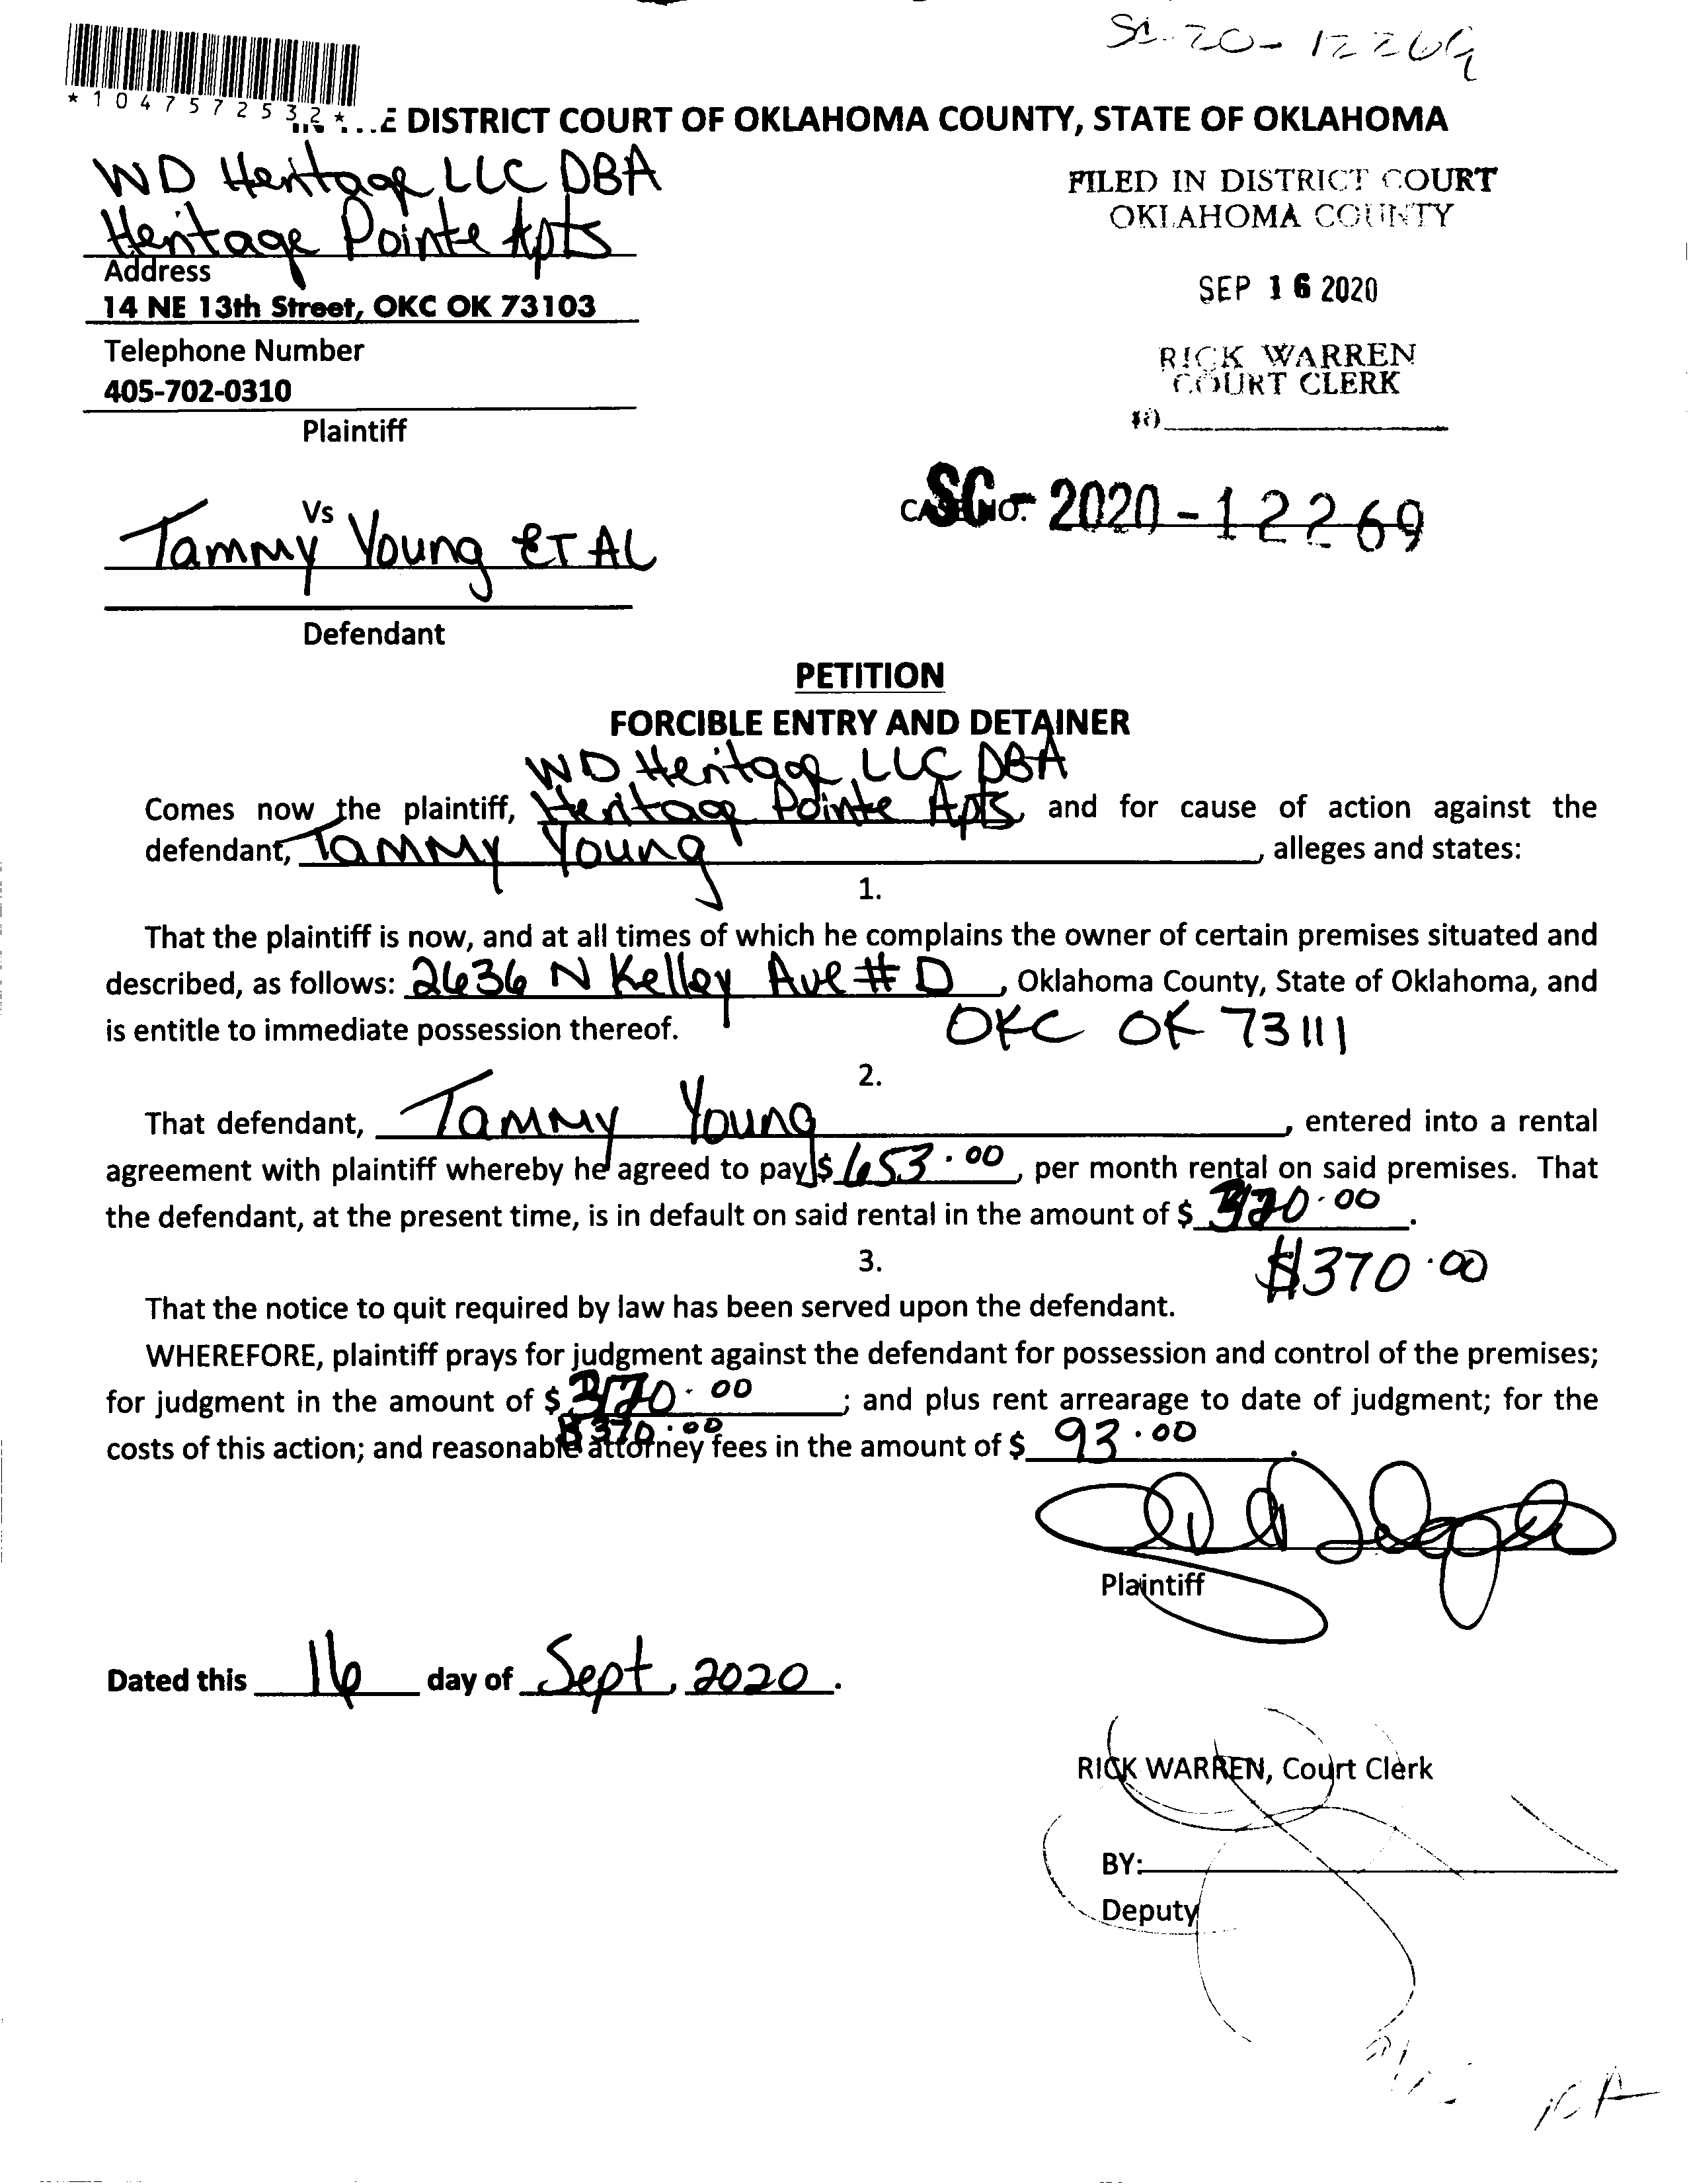 SC-20-12269
*1047572532*
E DISTRICT COURT OF OKLAHOMA COUNTY, STATE OF OKLAHOMA
WD Heritage LLC DBA
Heritage Pointe Apts
Address
14 NE 13th Street, OKC OK 73103
Telephone Number
405-702-0310
Plaintiff
FILED IN DISTRICT COURT
OKLAHOMA COUNTY
SEP 16 2020
RICK WARREN
COURT CLERK
Vs
Tammy Young ET AL
Defendant
CASE NO. SC-2020-12269
PETITION
FORCIBLE ENTRY AND DETAINER
WD Heritage LLC DBA
Comes now the plaintiff, Heritage Pointe Apts, and for cause of action against the
defendant, Tammy Young, alleges and states:
1.
That the plaintiff is now, and at all times of which he complains the owner of certain premises situated and
described, as follows: 2636 N Kelley Ave # D, Oklahoma County, State of Oklahoma, and
is entitle to immediate possession thereof. OKC OK 73111
2.
That defendant, Tammy Young, entered into a rental
agreement with plaintiff whereby he agreed to pay $ 653.00, per month rental on said premises. That
the defendant, at the present time, is in default on said rental in the amount of $ 370.00.
3.
$370.00
That the notice to quit required by law has been served upon the defendant.
WHEREFORE, plaintiff prays for judgment against the defendant for possession and control of the premises;
for judgment in the amount of $ 370.00; and plus rent arrearage to date of judgment; for the
$370.00
costs of this action; and reasonable attorney fees in the amount of $ 93.00.
Plaintiff
Dated this 16 day of Sept, 2020.
RICK WARREN, Court Clerk
BY:
Deputy